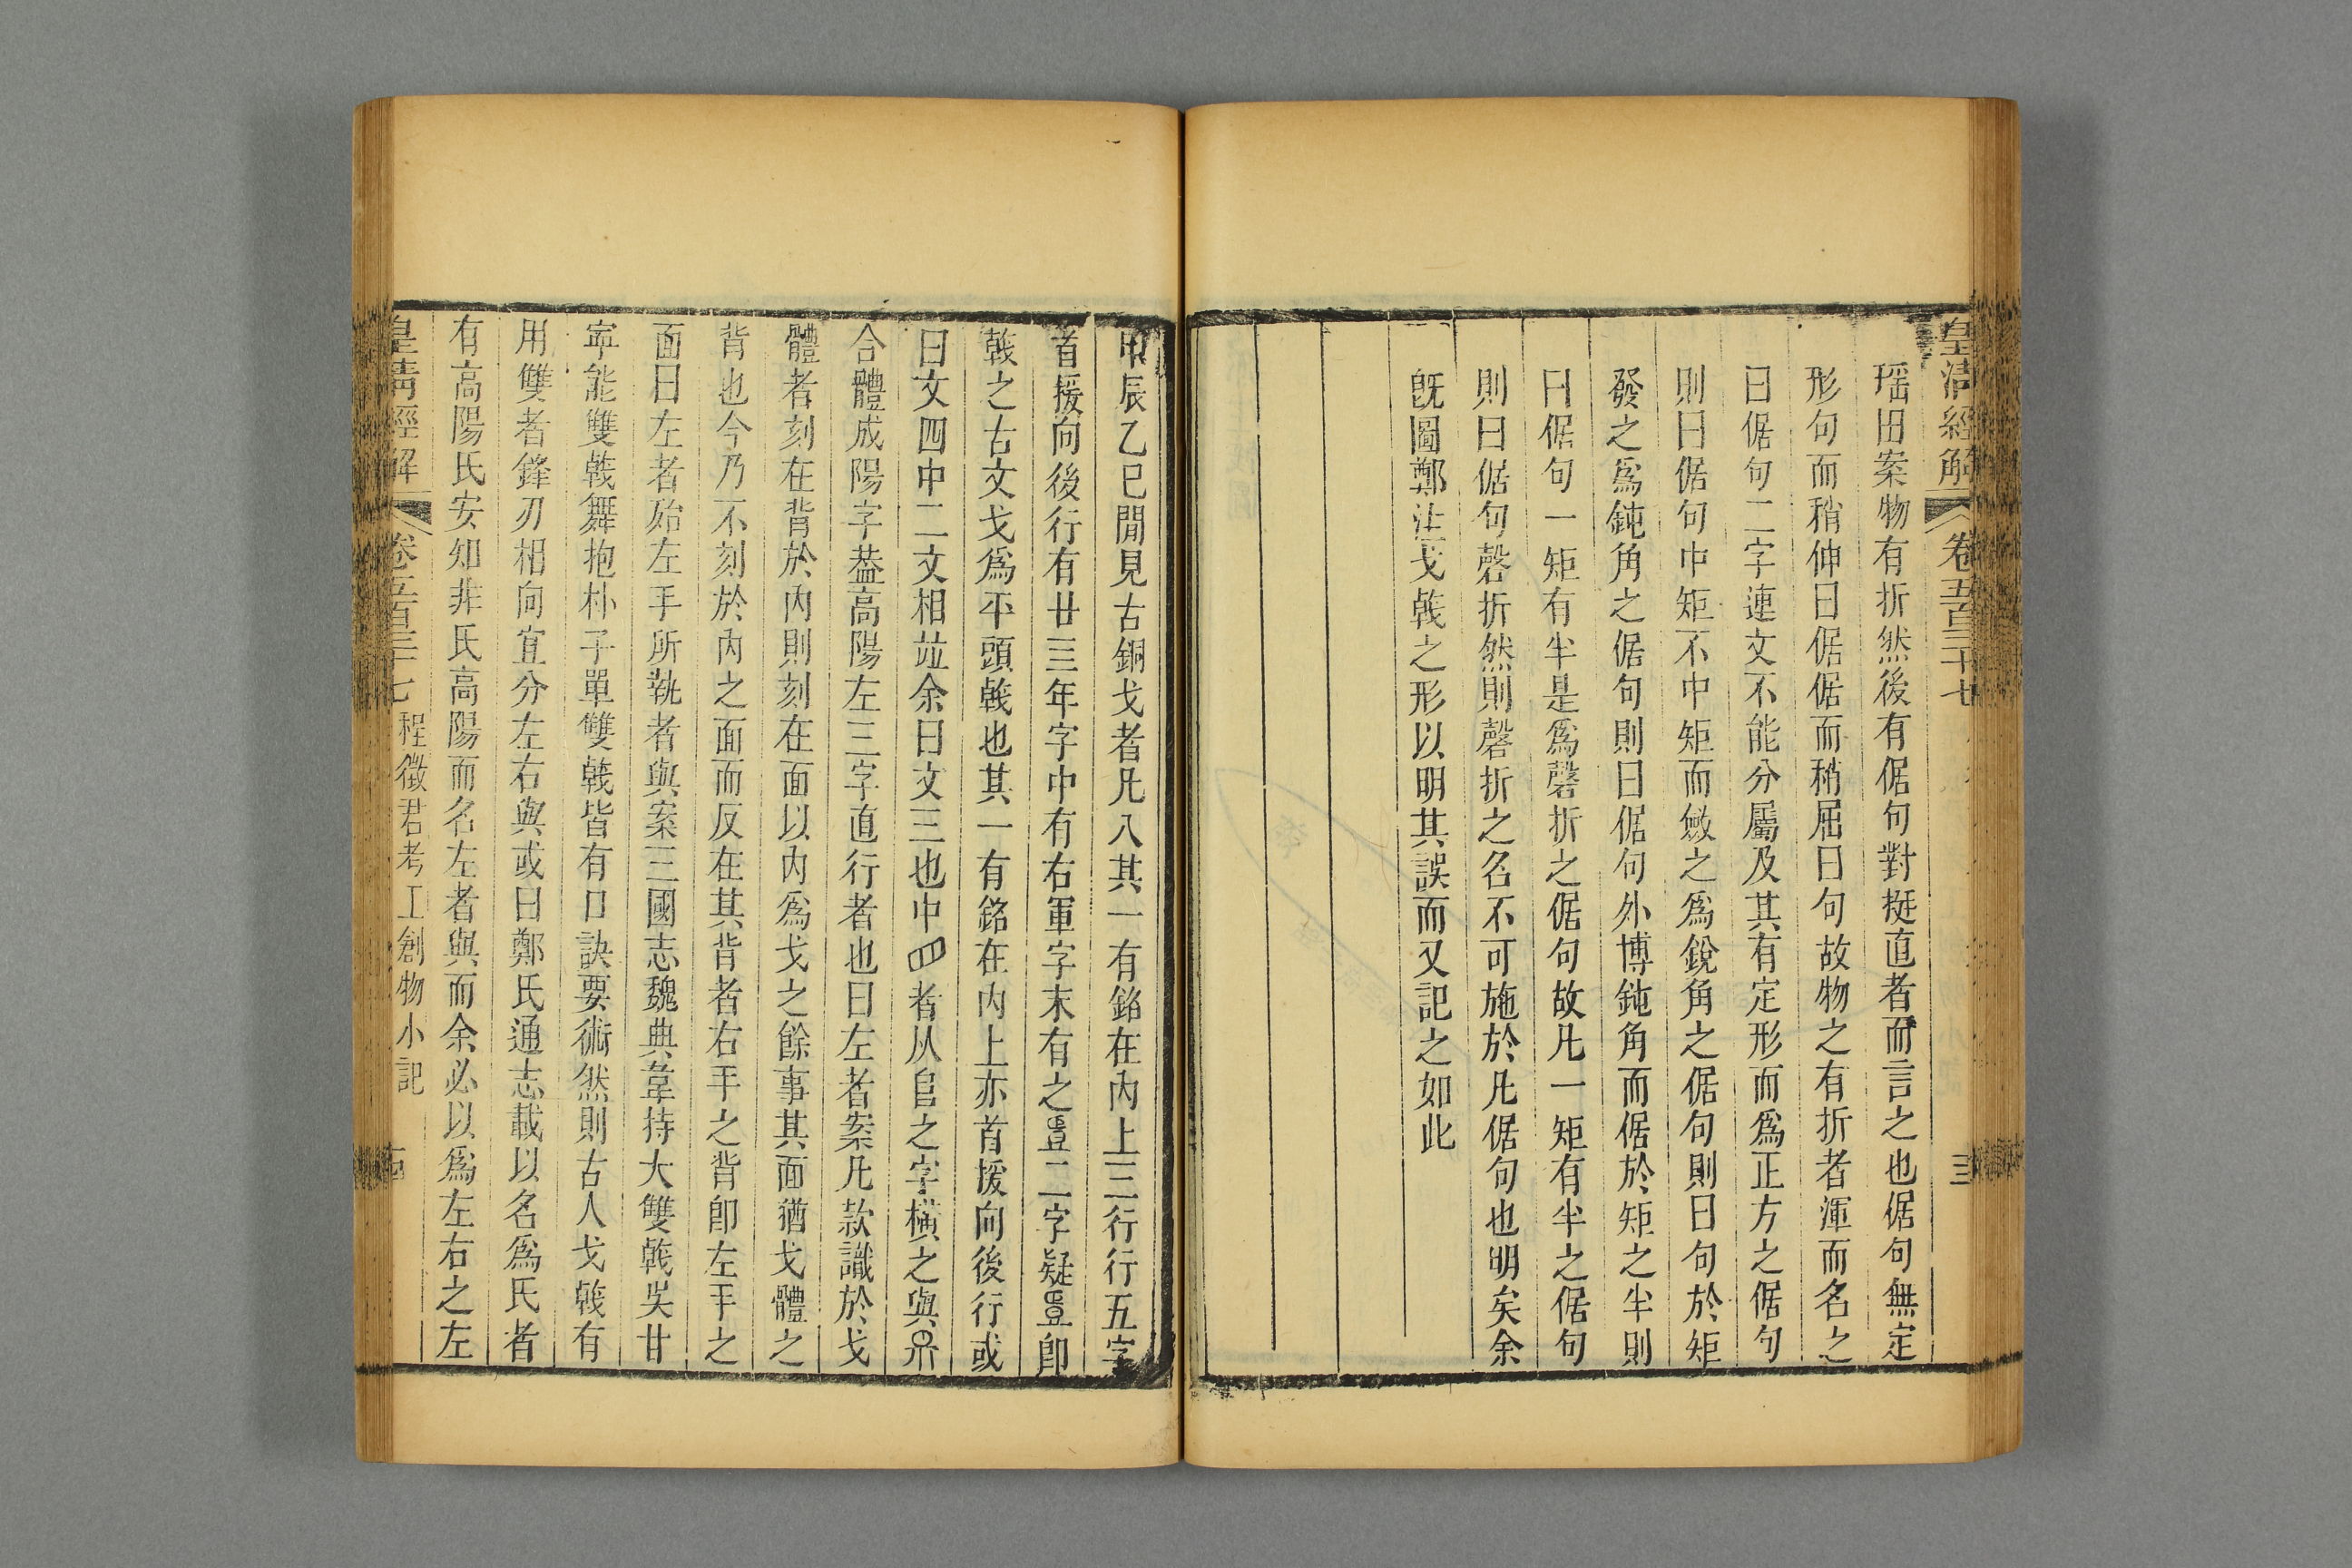 皇清經解
卷五百三十七
三
瑶田案物有折然後有倨句對挺直者而言之也倨句無定
形句而稍伸曰倨倨而稍屈曰句故物之有折者渾而名之
曰倨句二字連文不能分屬及其有定形而爲正方之倨句
則曰倨句中矩不中矩而斂之爲銳角之倨句則曰句於矩
發之爲鈍角之倨句則曰倨句外博鈍角而倨於矩之半則
曰倨句一矩有半是爲磬折之倨句故凡一矩有半之倨句
則曰倨句磬折然則磬折之名不可施於凡倨句也明矣余
旣圖鄭注戈戟之形以明其誤而又記之如此
甲辰乙巳閒見古銅戈者凡八其一有銘在內上三行行五字
首援向後行有廿三年字中有右軍字末有之二字疑卽
戟之古文戈爲平頭戟也其一有銘在內上亦首援向後行或
曰文四中二文相竝余曰文三也中者从𠂤之字橫之與
合體成陽字葢高陽左三字直行者也曰左者案凡款識於戈
體者刻在背於內則刻在面以內爲戈之餘事其面猶戈體之
背也今乃不刻於內之面而反在其背者右手之背卽左手之
面曰左者殆左手所執者與案三國志魏典韋持大雙戟吳甘
寧能雙戟舞抱朴子單雙戟皆有口訣要術然則古人戈戟有
用雙者鋒刃相向宜分左右與或曰鄭氏通志載以名爲氏者
有高陽氏安知非氏高陽而名左者與而余必以爲左右之左
皇清經解
卷五百三十七
程徵君考工創物小記